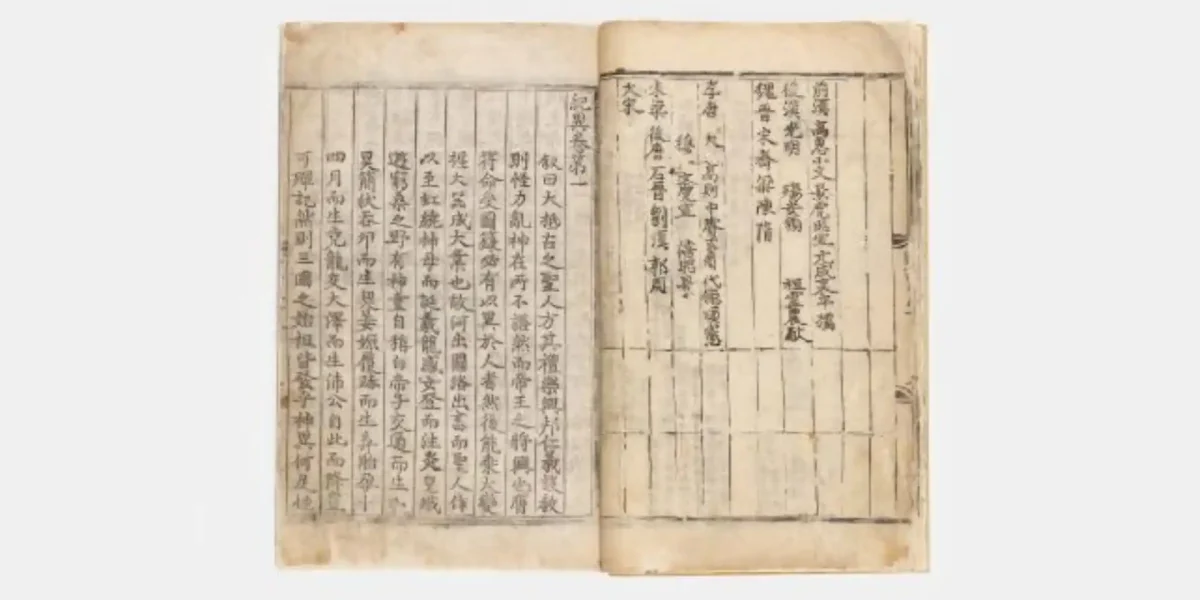 前漢 高惠小文景虎昭宣 元成哀平孺
後漢光明 殤安順 桓霊農献
魏晉宋齊梁陳隋
李唐 太 高則中睿玄肅代德順憲
穆 文虎宣 懿僖昭景
朱梁 後唐 石晉 劉漢 郭周
大宋
紀異卷第一
叙曰大抵古之聖人方其禮樂興邦仁義設教
則怪力亂神在所不語然而帝王之將興也膺
符命受圖籙必有以異於人者然後能乘大變
握大器成大業也故河出圖洛出書而聖人作
以至虹繞神母而誕羲龍感女登而注炎皇娥
遊窮桑之野有神童自稱白帝子交通而生小
昊簡狄吞卵而生契姜嫄履跡而生弃胎孕十
四月而生堯龍交大澤而生沛公自此而降豈
可殫記然則三國之始祖皆發乎神異何足怪